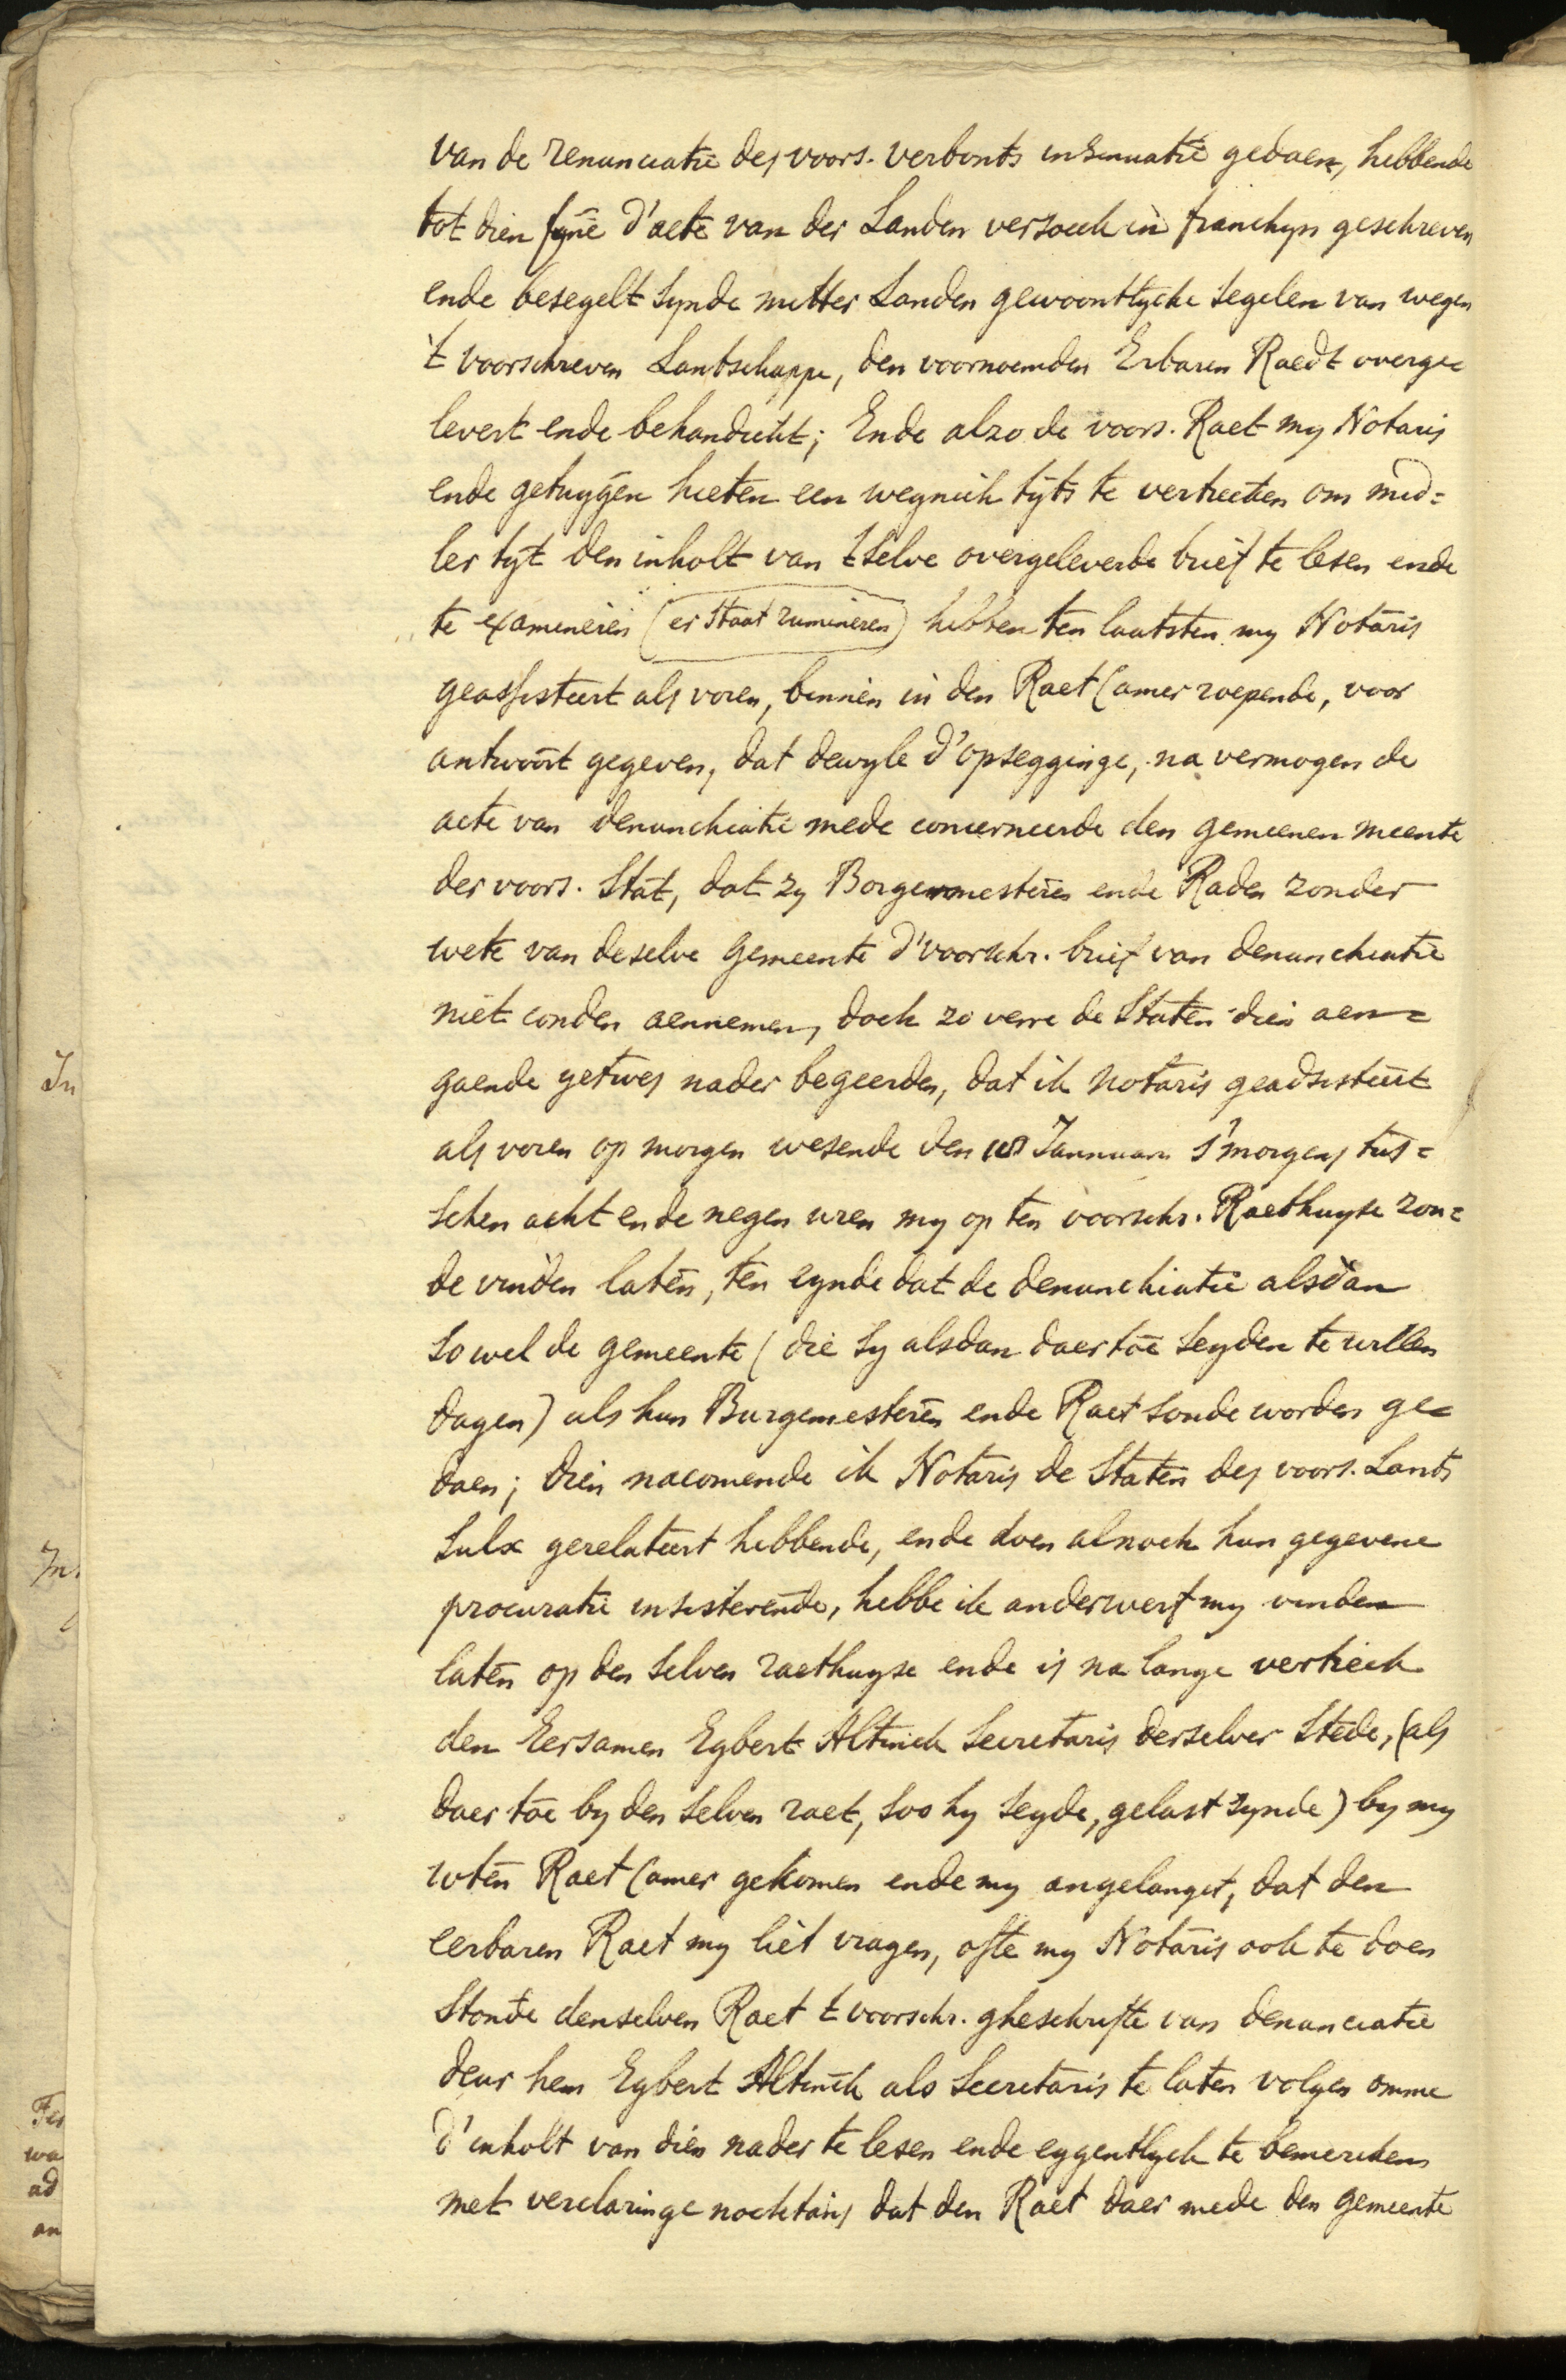 van de renunciatie des voors. verbonts insinuatie gedaen, hebbende
tot dien fyne d'acte van der Landen versoeck in franchyn geschreven
ende besegelt synde metter Landen gewoontlycke segelen van wegen
't voorschreven Lantschappe, den voornoemden Erbaren Raedt overge=
levert ende behandicht; Ende alzo de voors. Raet my Notaris
ende getuygen hieten een weynich tijts te vertrecken om mid=
ler tijt den inholt van tselve overgeleverde brief te lesen ende
te examineren (er staat rumineren) hebben ten laatsten my Notaris
geassisteert als voren, binnen in den Raet Camer roepende, voor
antwoort gegeven, dat dewyle d'opsegginge, na vermogen de
acte van denunchiatie mede concerneerde den gemeenen meente
der voors. Stat, dat zy Borgermesteren ende Raden zonder
wete van deselve Gemeente d'voorschr. brief van denunchiatie
niet conden aennemen, doch zo verre de Staten dien aen=
gaende yetwes nader begeerden, dat ik Notaris geadsisteert
als voren op morgen wesende den Jannuary s'morgens tus=
schen acht ende negen uren my op ten voorschr. Raethuyse zou=
de vinden laten, ten eynde dat de denunchiatie alsdan
so wel de gemeente (die sy alsdan daertoe seyden te willen
dagen) als hun Burgemesteren ende Raet soude worden ge=
daen; dien nacomende ik Notaris de Staten des voors. Lants
sulx gerelateert hebbende, ende doen alnoch hun gegevene
procuratie insisterende, hebbe ik anderwerf my vinden
laten op den selven raethuyse ende is na lange vertreck
den Eersamen Egbert Altinck Secretaris derselver Stede, (als
daer toe by den selven raet, soo hy seyde, gelast zynde) by my
wten Raet Camer gekomen ende my angelanget, dat den
eerbaren Raet my liet vragen, ofte my Notaris ook te doen
stonde denselven Raet t voorschr. gheschrifte van denunciatie
deur hem Egbert Altinck als Secretaris te laten volgen omme
d'inholt van dien nader te lesen ende eygentlyck te bemercken
met verclaringe nochtans dat den Raet daer mede den gemeente